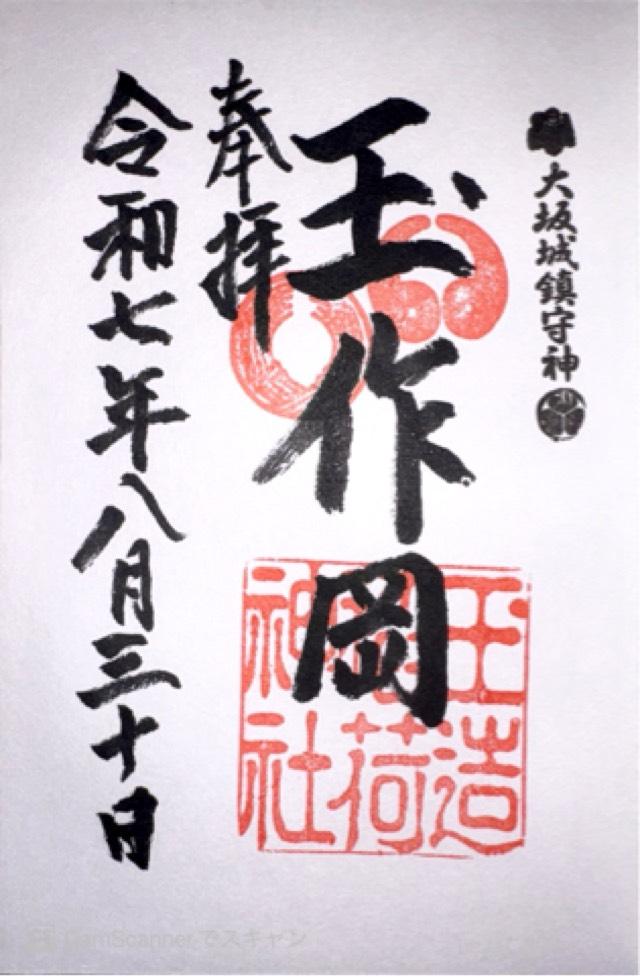 大坂城鎮守神
玉作岡
奉拝
令和七年八月三十日
玉造
稲荷
神社
CamScannerでスキャン